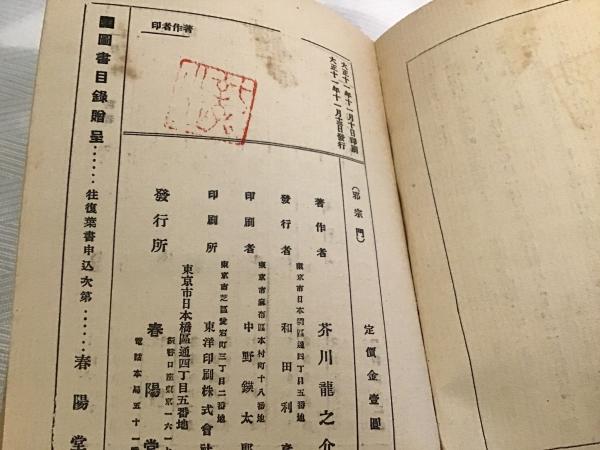 大正十一年十一月十日印刷
大正十一年十一月十三日發行
(邪宗門)
定價金壹圓
著作者 芥川龍之介
東京市日本橋區通四丁目五番地
發行者 和田利彦
東京市麻布區本村町十八番地
印刷者 中野鍈太郎
東京市芝區愛宕町三丁目二番地
印刷所 東洋印刷株式會社
東京市日本橋區通四丁目五番地
發行所 春陽堂
振替口座東京一六一七
電話本局五十一
著作者印
圖書目錄贈呈……往復葉書申込次第……春陽堂